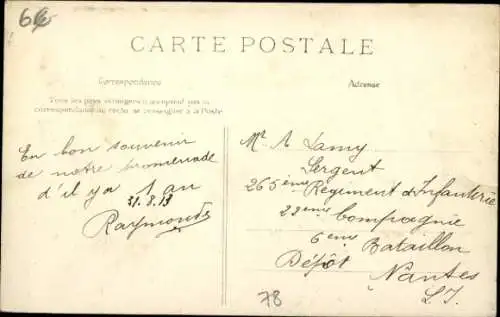 66
CARTE POSTALE
Correspondance
Adresse
Tous les pays étrangers n'acceptent pas la
correspondance au recto se renseigner à la Poste
En bon souvenir
de notre promenade
d'il y a 1 an
31.8.13
Raymonde
Mr A Lamy
Sergent
265ème Regiment d'Infanterie
23ème Compagnie
6ème Bataillon
Dépôt Nantes
L.I.
78